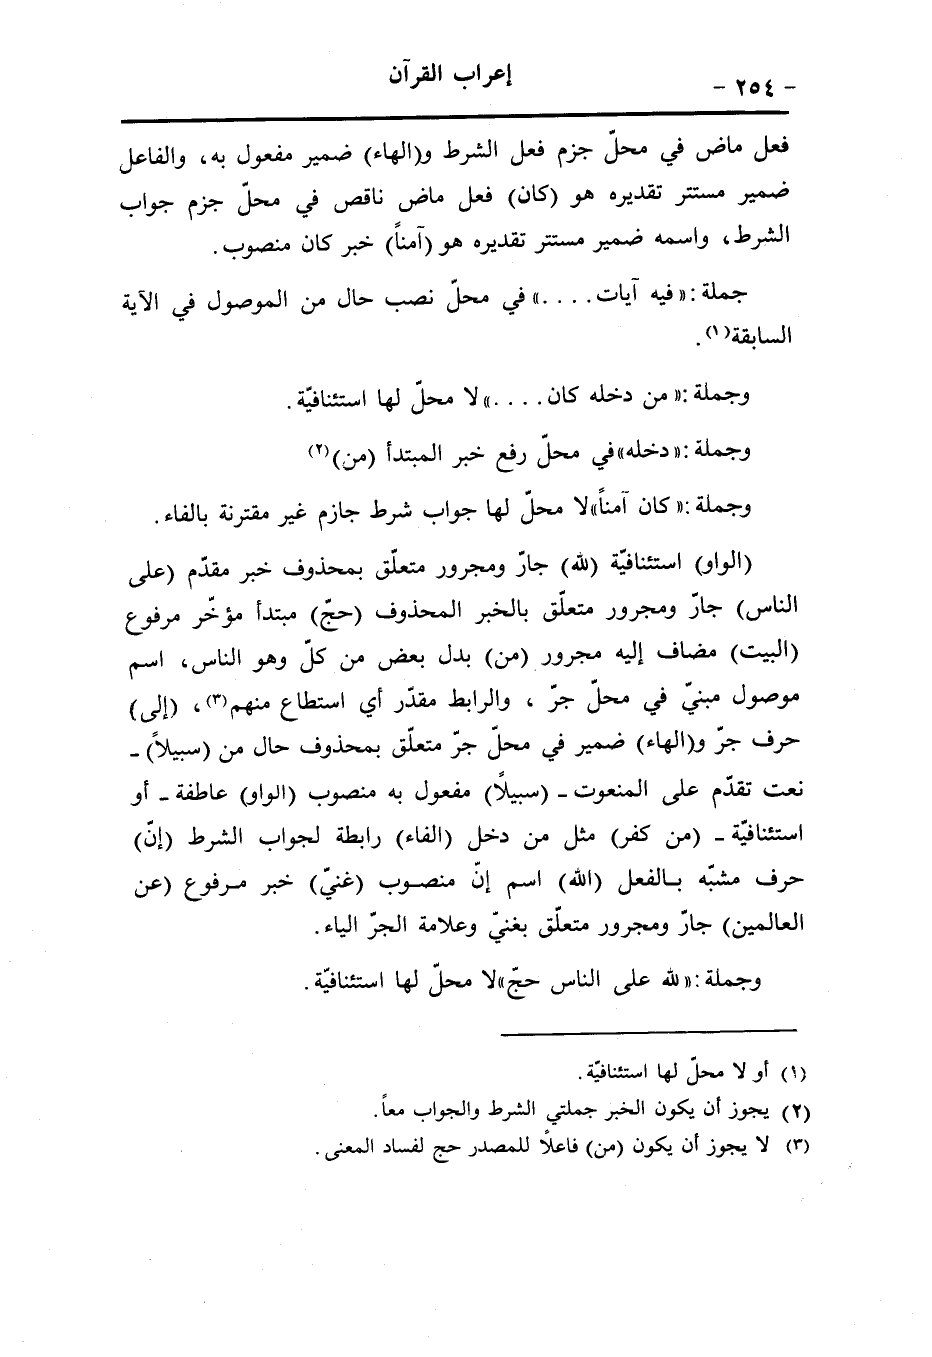 - ٢٥٤ -
إعراب القرآن
فعل ماض في محلّ جزم فعل الشرط و(الهاء) ضمير مفعول به، والفاعل
ضمير مستتر تقديره هو (كان) فعل ماض ناقص في محلّ جزم جواب
الشرط، واسمه ضمير مستتر تقديره هو (آمناً) خبر كان منصوب.
جملة: «فيه آيات....» في محلّ نصب حال من الموصول في الآية
السابقة(١).
وجملة: «من دخله كان....» لا محلّ لها استئنافيّة.
وجملة: «دخله» في محلّ رفع خبر المبتدأ (من)(٢)
وجملة: «كان آمناً» لا محلّ لها جواب شرط جازم غير مقترنة بالفاء.
(الواو) استئنافيّة (لله) جارّ ومجرور متعلّق بمحذوف خبر مقدّم (على
الناس) جارّ ومجرور متعلّق بالخبر المحذوف (حجّ) مبتدأ مؤخّر مرفوع
(البيت) مضاف إليه مجرور (من) بدل بعض من كلّ وهو الناس، اسم
موصول مبنيّ في محلّ جرّ ، والرابط مقدّر أي استطاع منهم(٣)، (إلى)
حرف جرّ و(الهاء) ضمير في محلّ جرّ متعلّق بمحذوف حال من (سبيلاً) -
نعت تقدّم على المنعوت - (سبيلاً) مفعول به منصوب (الواو) عاطفة - أو
استئنافيّة - (من كفر) مثل من دخل (الفاء) رابطة لجواب الشرط (إنّ)
حرف مشبّه بالفعل (الله) اسم إنّ منصوب (غنيّ) خبر مرفوع (عن
العالمين) جارّ ومجرور متعلّق بغنيّ وعلامة الجرّ الياء.
وجملة: «لله على الناس حجّ» لا محلّ لها استئنافيّة.
(١) أو لا محلّ لها استئنافيّة.
(٢) يجوز أن يكون الخبر جملتي الشرط والجواب معاً.
(٣) لا يجوز أن يكون (من) فاعلاً للمصدر حج لفساد المعنى.